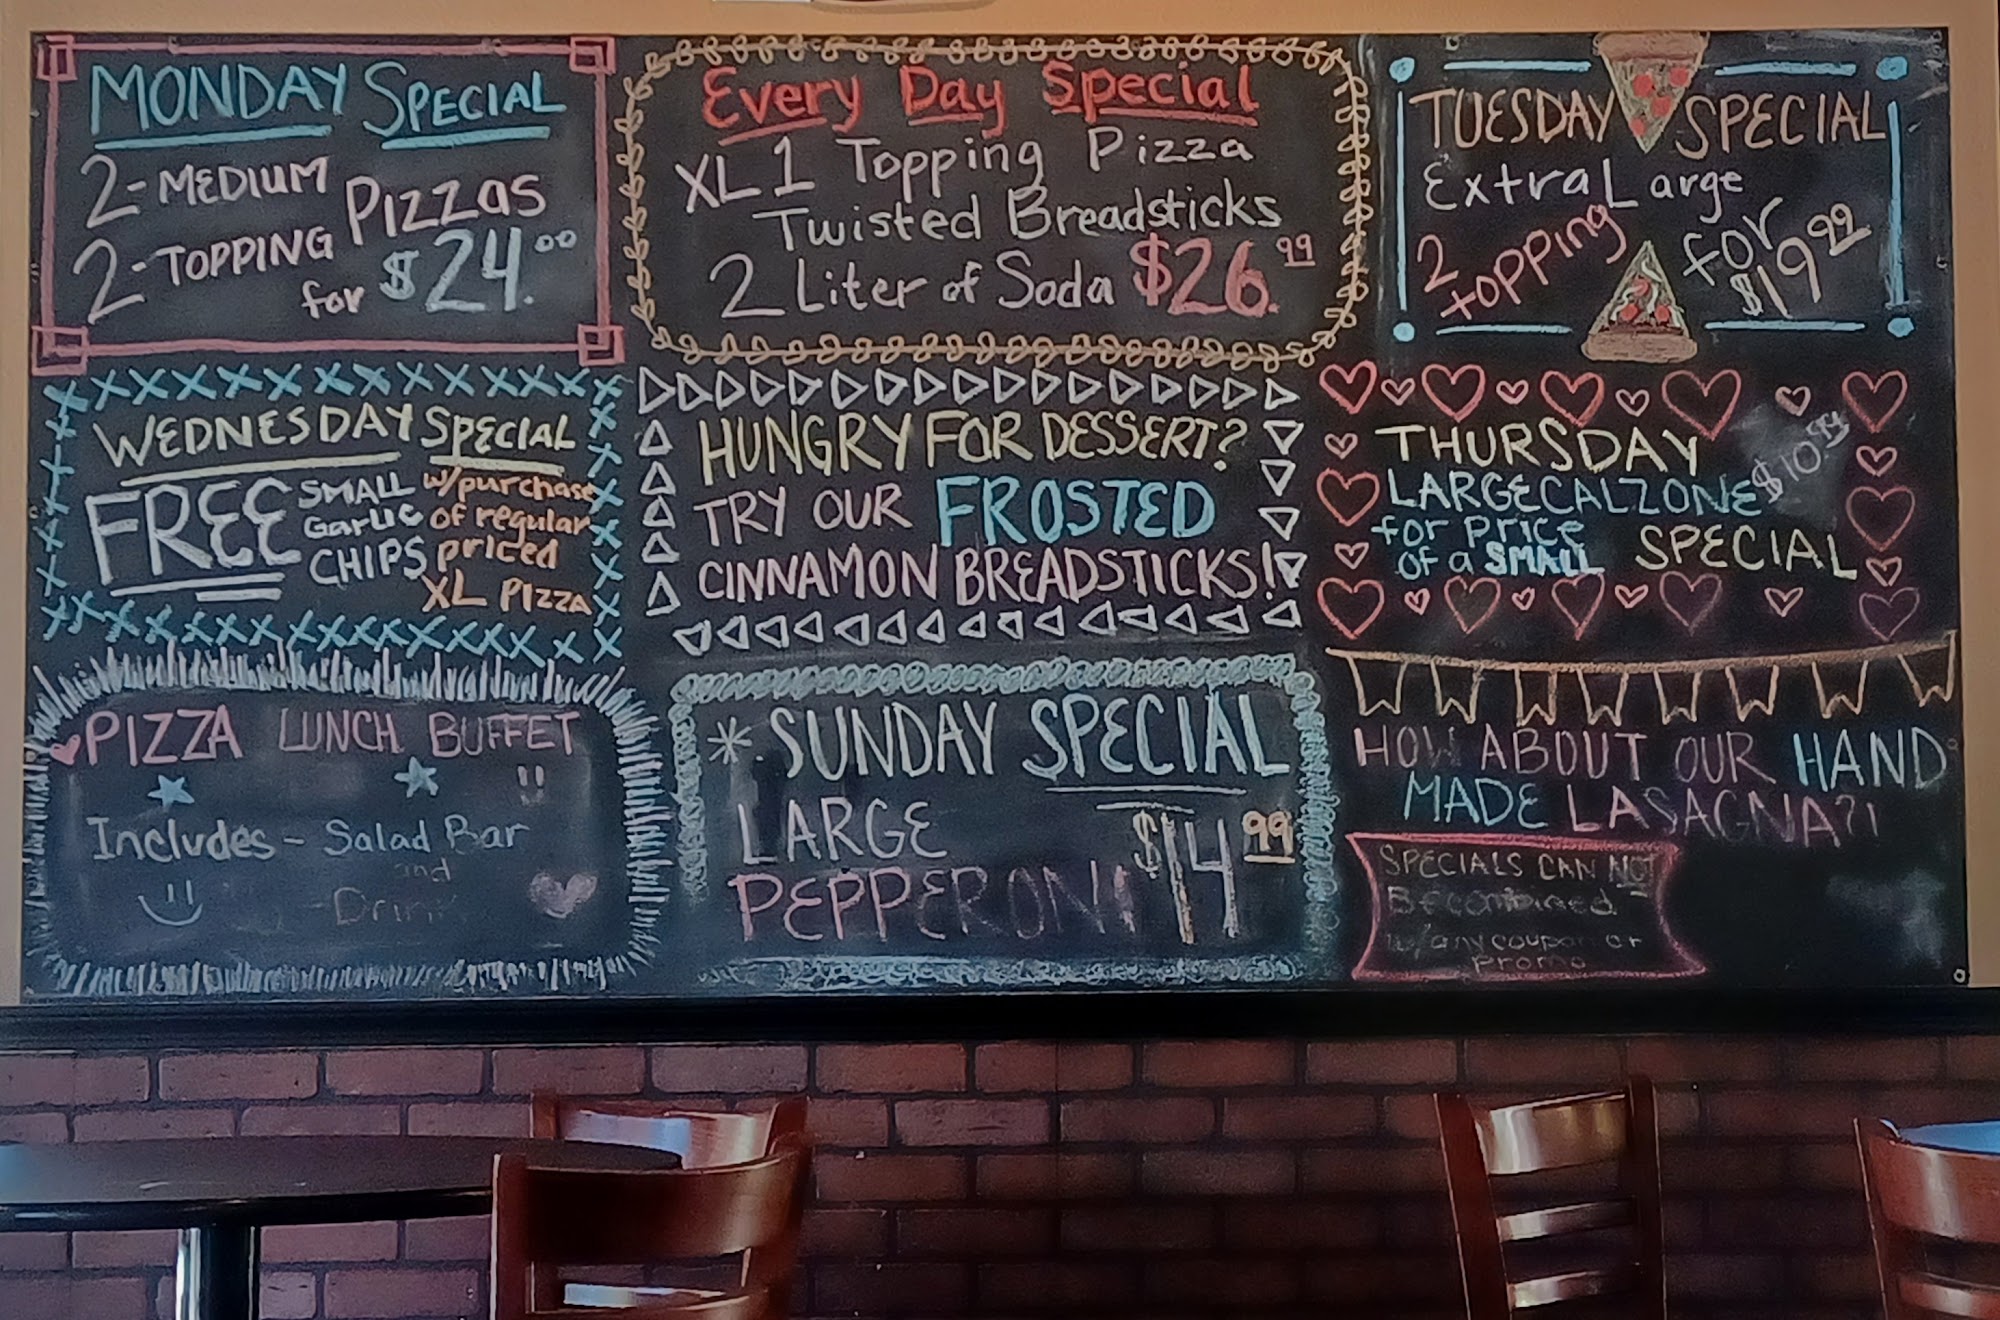 MONDAY SPECIAL
2-MEDIUM
2-TOPPING PIZZAS
for $24.00
Every Day Special
XL 1 Topping Pizza
Twisted Breadsticks
2 Liter of Soda $26.99
TUESDAY SPECIAL
Extra Large
2 topping for
$19.99
WEDNESDAY SPECIAL
FREE SMALL GARLIC CHIPS
w/purchase
of regular
priced
XL PIZZA
HUNGRY FOR DESSERT?
TRY OUR FROSTED
CINNAMON BREADSTICKS!
THURSDAY
LARGE CALZONE $10.99
for price
of a SMALL SPECIAL
PIZZA LUNCH BUFFET
Includes - Salad Bar
and
- Drink
* SUNDAY SPECIAL
LARGE $14.99
PEPPERONI
HOW ABOUT OUR HAND
MADE LASAGNA?!
SPECIALS CAN NOT
Be combined
w/any coupon or
promo